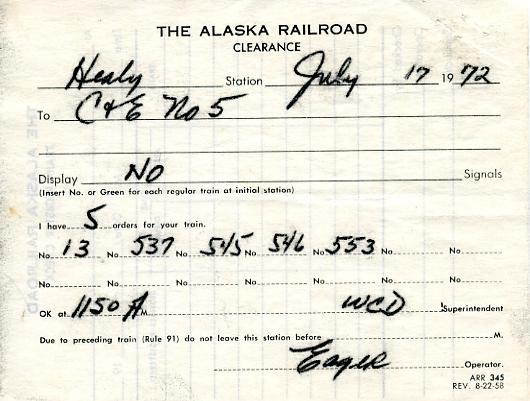 THE ALASKA RAILROAD
CLEARANCE
Healy Station July 17 1972
To C&E No 5
Display NO Signals
(Insert No. or Green for each regular train at initial station)
I have 5 orders for your train.
No. 13 No. 537 No. 545 No. 546 No. 553 No. No.
No. No. No. No. No. No. No.
OK at 1150 A M. WCD Superintendent
Due to preceding train (Rule 91) do not leave this station before M.
Eager Operator.
ARR 345
REV. 8-22-58